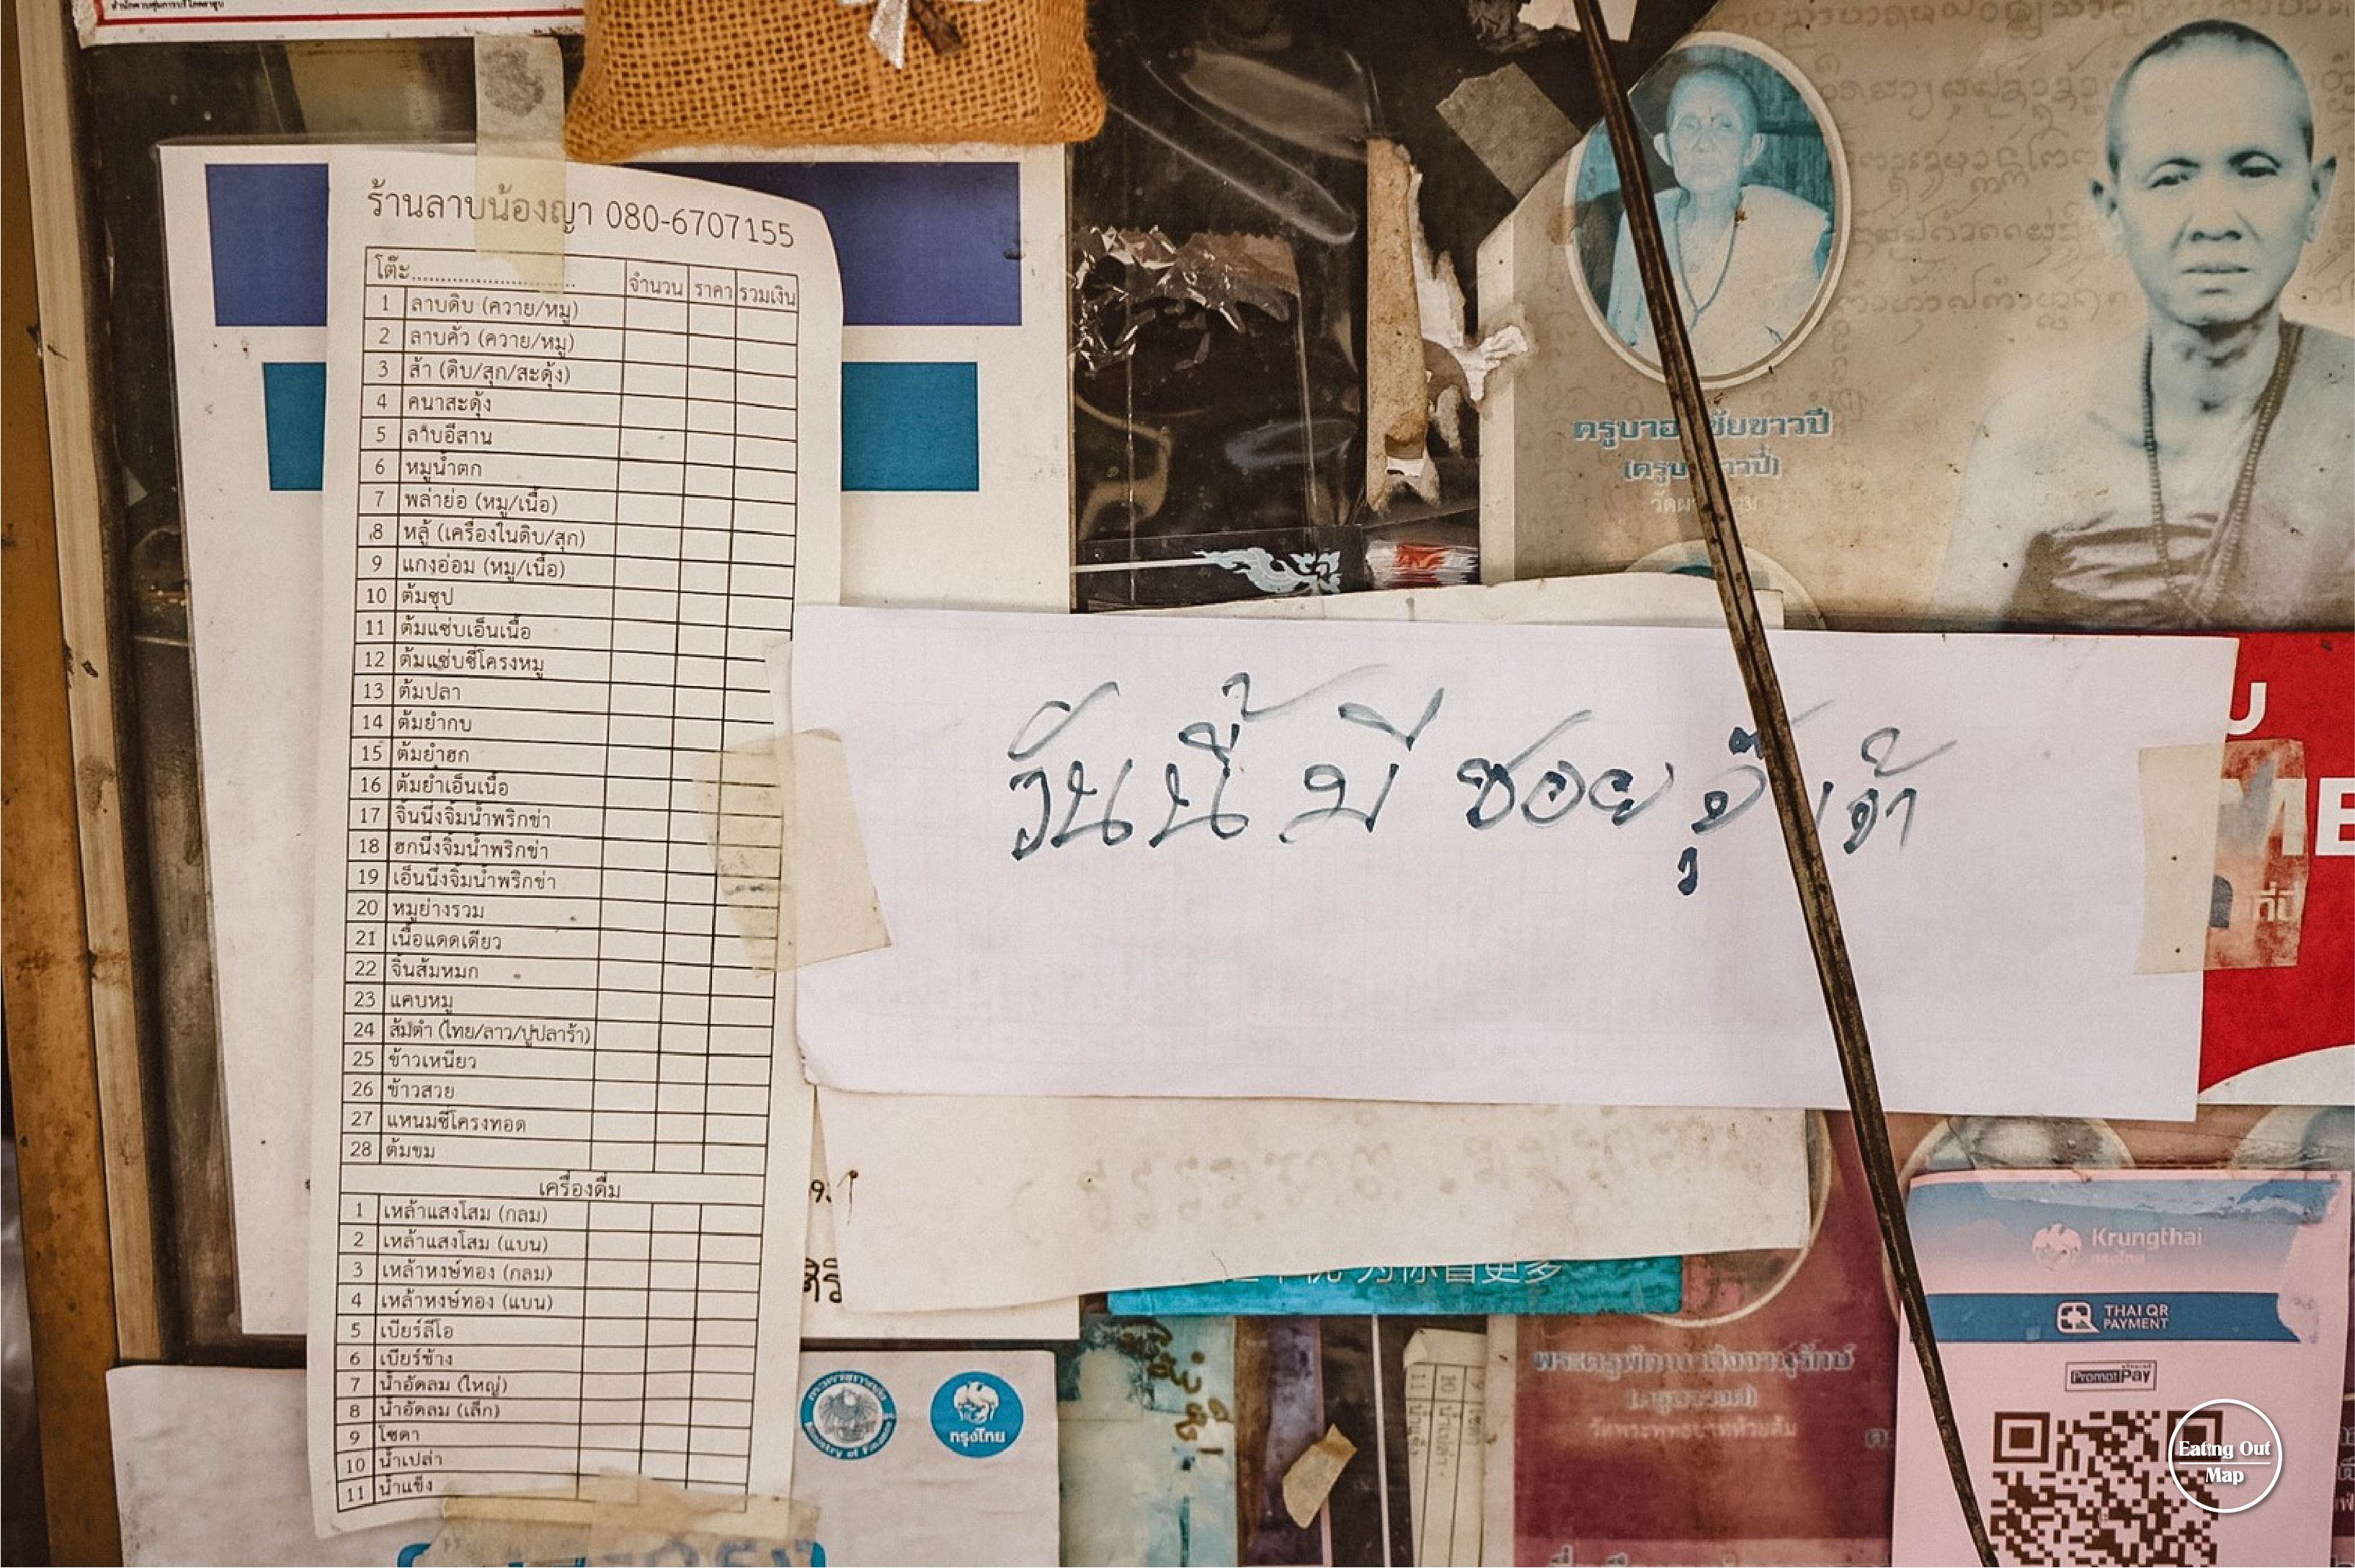 สำนักควบคุมการบริโภคยาสูบ
ร้านลาบน้องญา 080-6707155
โต๊ะ.............................. จำนวน ราคา รวมเงิน
1 ลาบดิบ (ควาย/หมู)
2 ลาบคั่ว (ควาย/หมู)
3 ส้า (ดิบ/สุก/สะดุ้ง)
4 คนาสะดุ้ง
5 ลาบอีสาน
6 หมูน้ำตก
7 พล่าย่อ (หมู/เนื้อ)
8 หลู้ (เครื่องในดิบ/สุก)
9 แกงอ่อม (หมู/เนื้อ)
10 ต้มซุป
11 ต้มแซ่บเอ็นเนื้อ
12 ต้มแซ่บซี่โครงหมู
13 ต้มปลา
14 ต้มยำกบ
15 ต้มยำฮก
16 ต้มยำเอ็นเนื้อ
17 จิ้นนึ่งจิ้มน้ำพริกข่า
18 ฮกนึ่งจิ้มน้ำพริกข่า
19 เอ็นนึ่งจิ้มน้ำพริกข่า
20 หมูย่างรวม
21 เนื้อแดดเดียว
22 จิ้นส้มหมก
23 แคบหมู
24 ส้มตำ (ไทย/ลาว/ปูปลาร้า)
25 ข้าวเหนียว
26 ข้าวสวย
27 แหนมซี่โครงทอด
28 ต้มขม
เครื่องดื่ม
1 เหล้าแสงโสม (กลม)
2 เหล้าแสงโสม (แบน)
3 เหล้าหงษ์ทอง (กลม)
4 เหล้าหงษ์ทอง (แบน)
5 เบียร์ลีโอ
6 เบียร์ช้าง
7 น้ำอัดลม (ใหญ่)
8 น้ำอัดลม (เล็ก)
9 โซดา
10 น้ำเปล่า
11 น้ำแข็ง
วันนี้ มี ซอยจุ๊ เจ้า
(ครูบาขาวปี)
Krungthai
กรุงไทย
THAI QR
PAYMENT
PromptPay
Ministry of Finance
กรุงไทย
วัดพระพุทธบาทห้วยต้ม
Eating Out
Map